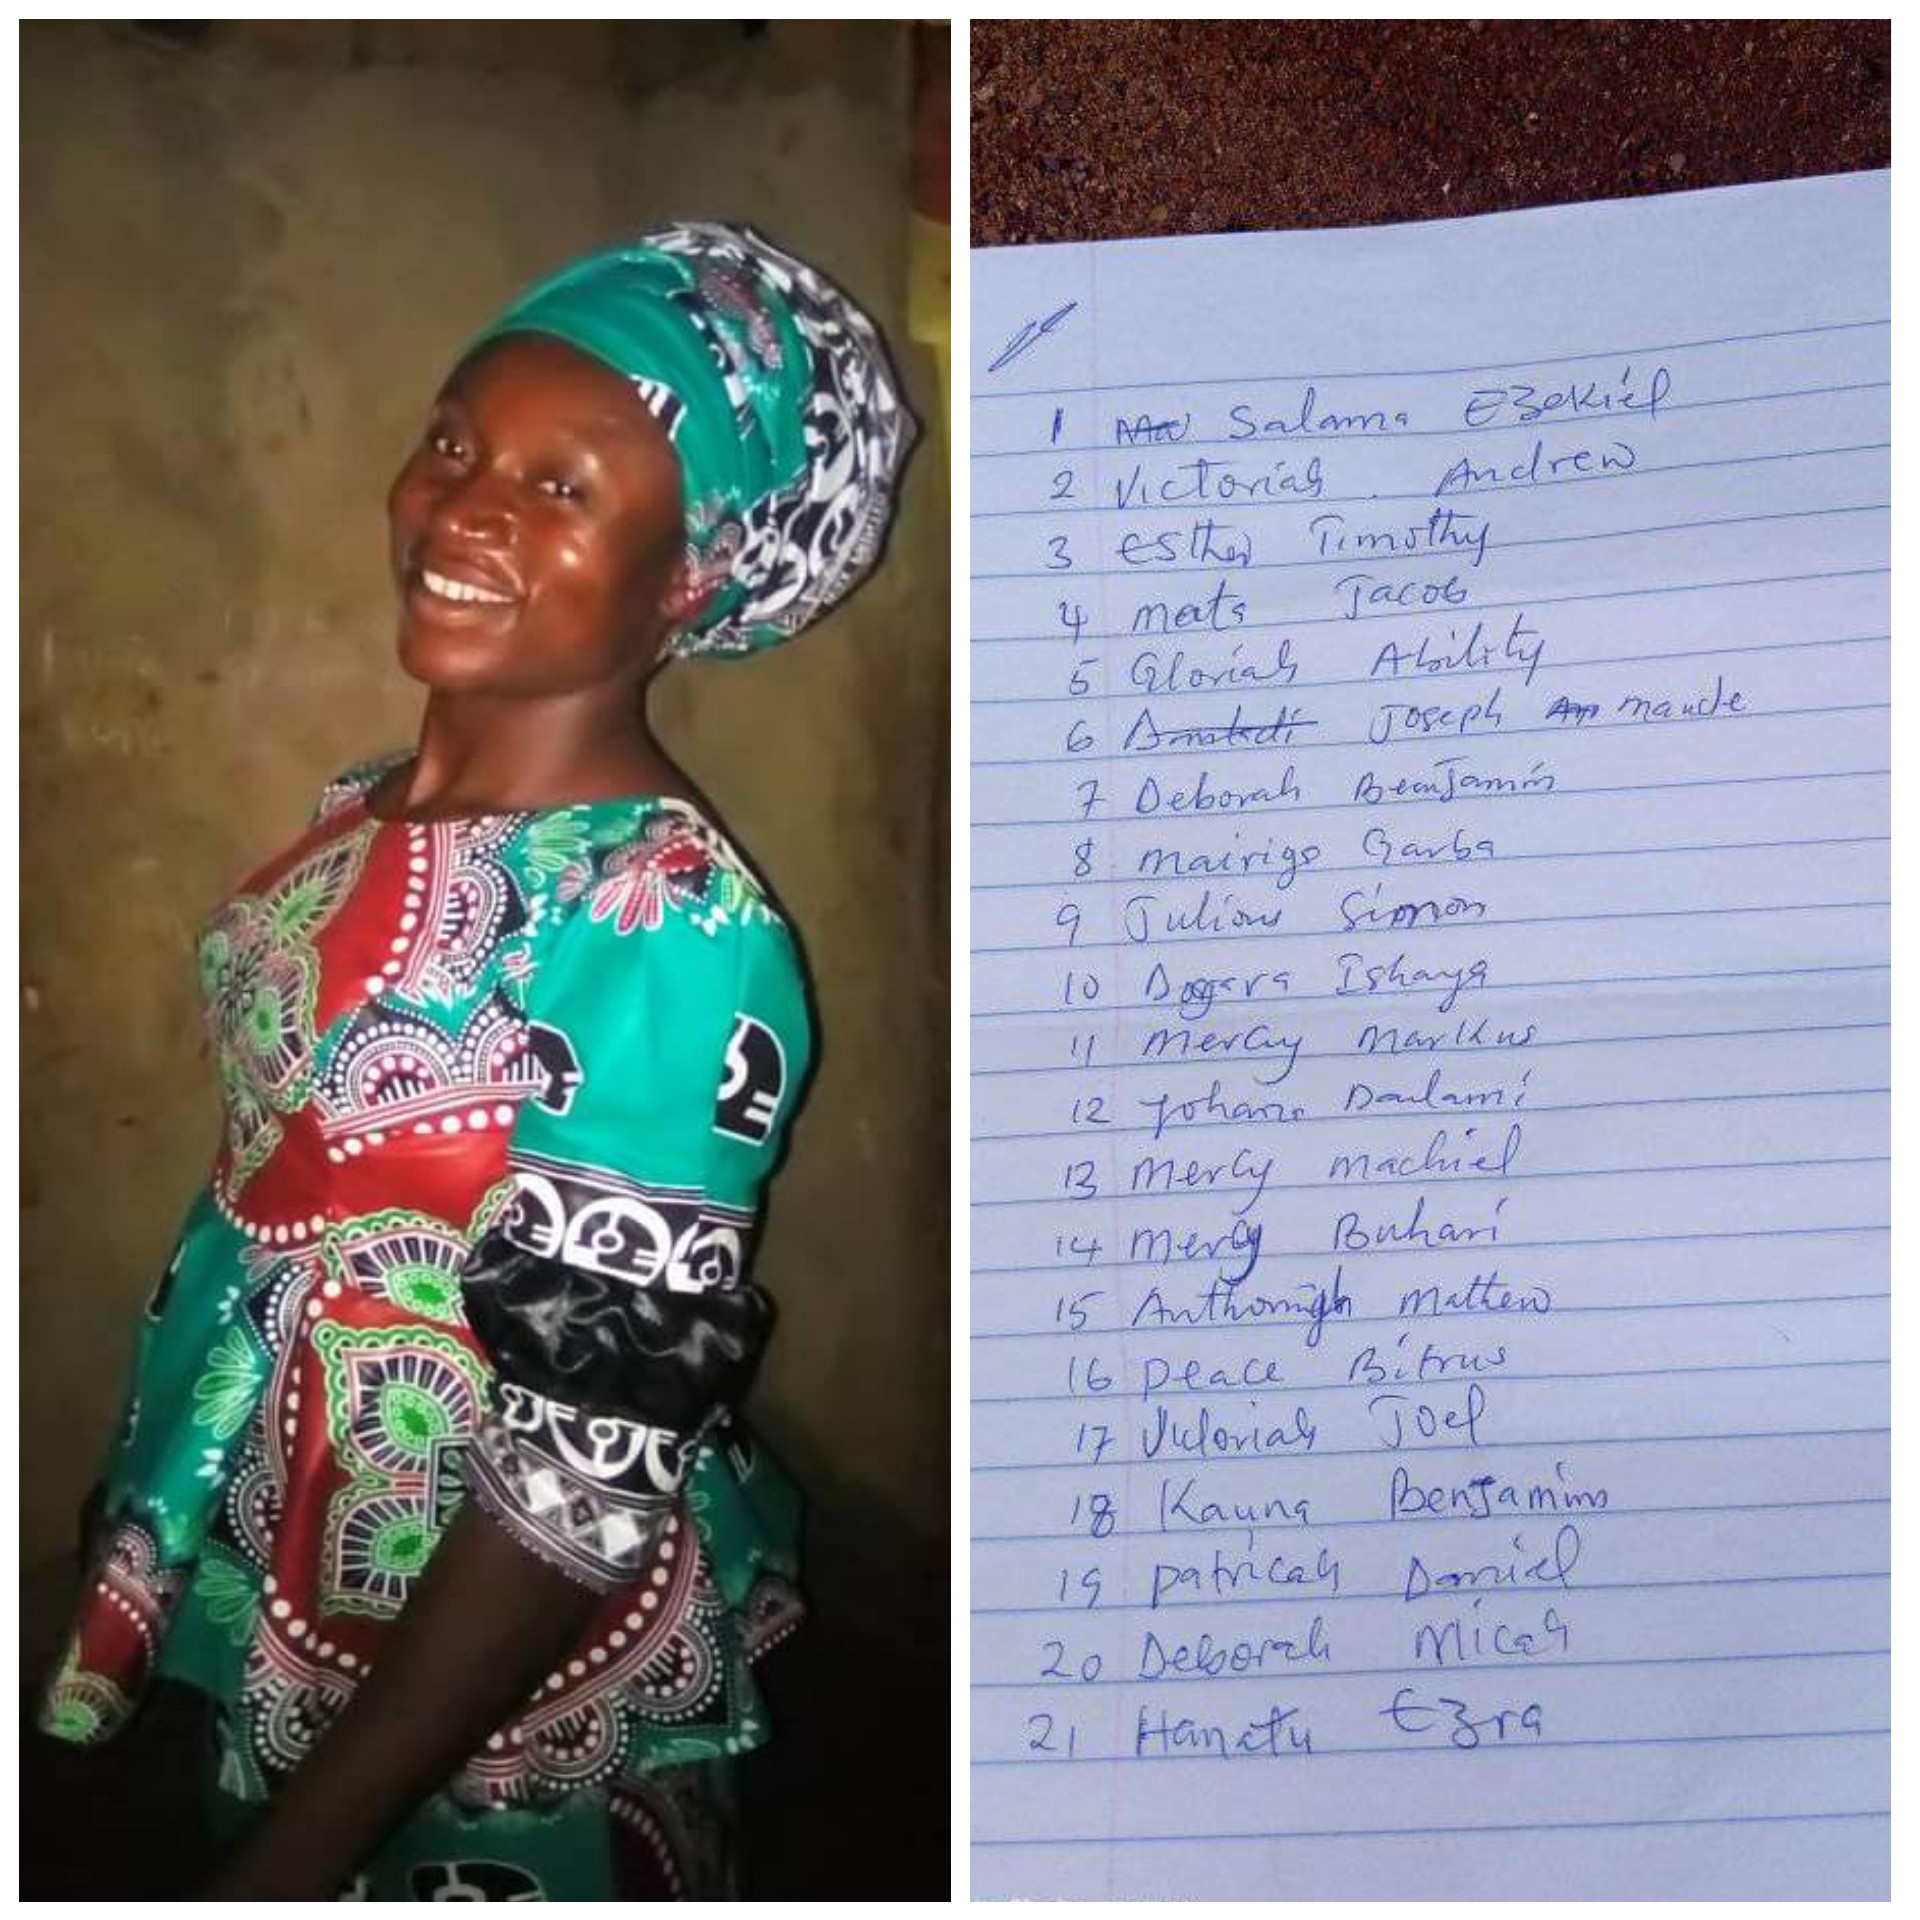 1 Salama Ezekiel
2 Victoriah Andrew
3 Esther Timothy
4 mata Jacob
5 Gloriah Ability
6 Joseph maude
7 Deborah Benjamin
8 mairigo Garba
9 Julious Simon
10 Dogara Ishaya
11 mercy markus
12 Yohana Danlami
13 mercy machiel
14 mercy Buhari
15 mathew
16 peace Bitrus
17 Victoriah Joel
18 Kauna Benjamin
19 patricah Daniel
20 Deborah Micah
21 Hanatu Ezra